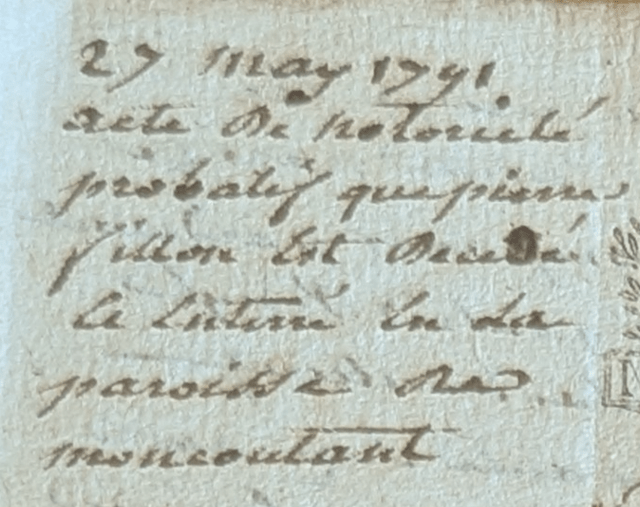 27 may 1791
acte de notorieté
probatif que pierre
fillon est decedé
et enterré en la
paroisse de
moncoutant